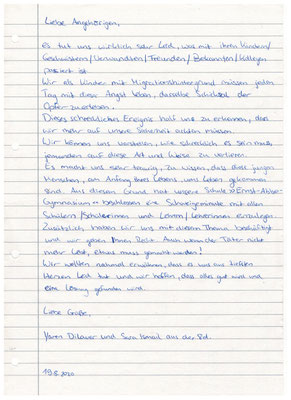 Liebe Angehörigen,
es tut uns wirklich sehr Leid, was mit ihren Kindern/
Geschwistern/Verwandten/Freunden/Bekannten/Kollegen
passiert ist.
Wir als Kinder mit Migrationshintergrund müssen jeden
Tag mit dieser Angst leben, dasselbe Schicksal der
Opfer zu erleben.
Dieses schreckliche Ereignis half uns zu erkennen, dass
wir mehr auf unsere Sicherheit achten müssen.
Wir können uns vorstellen, wie schrecklich es sein muss,
jemanden auf diese Art und Weise zu verlieren.
Es macht uns sehr traurig, zu wissen, dass diese jungen
Menschen, am Anfang ihres Lebens, ums Leben gekommen
sind. Aus diesem Grund hat unsere Schule
Gymnasium beschlossen eine Schweigeminute mit allen
Schülern/Schülerinnen und Lehrern/Lehrerinnen einzulegen.
Zusätzlich haben wir uns mit diesem Thema beschäftigt
und wir geben Ihnen Recht. Auch wenn der Täter nicht
mehr lebt, etwas muss gemacht werden!
Wir wollten nochmal erwähnen, dass es uns aus tiefsten
Herzen Leid tut und wir hoffen, dass alles gut wird und
eine Lösung gefunden wird.
Liebe Grüße,
Dilaver und Sara Ismail aus der
19.8.2020